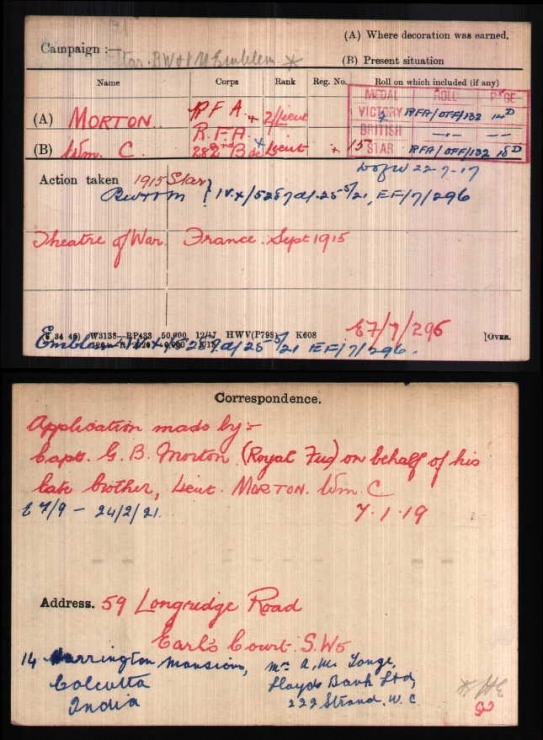 (A) Where decoration was earned.
Campaign :—
(B) Present situation
Name Corps Rank Reg. No. Roll on which included (if any)
MEDAL ROLL PAGE
(A) MORTON R F A 2/Lieut
VICTORY RFA/OFF/132 14D
R.F.A.
BRITISH —..— —..—
(B) Wm. C. Lieut 15 STAR RFA/OFF/132 18D
D of W 22-7-17
Action taken 1915 Star
IV.X/5257a/.25/5/21, EF/7/296
Theatre of War. France. Sept 1915
E7/7/296
W3138—RP433 50,000 12/17 HWV(P798) K608 [OVER.
Emblem 25/5/21 EF/7/296.
Correspondence.
Application made by:-
Capt. G. B. Morton (Royal Fus) on behalf of his
late brother, Lieut. MORTON. Wm. C
E 7/9 – 24/2/21. 7.1.19
Address. 59 Longridge Road
Earl's Court. S.W5
14 Harrington Mansions,
Calcutta
India
Lloyds Bank Ltd,
222 Strand. W.C